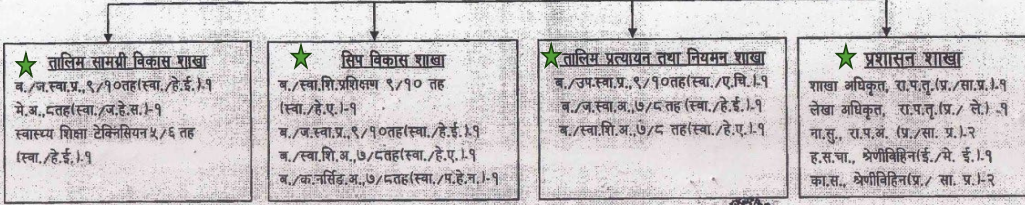 तालिम सामग्री विकास शाखा
ब./ज.स्वा.प्र.,९/१०तह(स्वा./हे.ई.)-१
मे.अ.,८तह(स्वा./ज.हे.स.)-१
स्वास्थ्य शिक्षा टेक्निसियन ५/६ तह
(स्वा./हे.ई.)-१
सिप विकास शाखा
ब./स्वा.शि.प्रशिक्षण ९/१० तह
(स्वा./हे.ए.)-१
ब./ज.स्वा.प्र.,९/१०तह(स्वा./हे.ई.)-१
ब./स्वा.शि.अ.,७/८तह(स्वा./हे.ए.)-१
ब./क.नर्सिङ.अ.,७/८तह(स्वा./प.हे.न.)-१
तालिम प्रत्यायन तथा नियमन शाखा
ब./उप.स्वा.प्र.,९/१०तह(स्वा./ए.चि.)-१
ब./ज.स्वा.अ.,७/८ तह(स्वा./हे.ई.)-१
ब./स्वा.शि.अ.,७/८ तह(स्वा./हे.ए.)-१
प्रशासन शाखा
शाखा अधिकृत, रा.प.तृ.(प्र./सा.प्र.)-१
लेखा अधिकृत, रा.प.तृ.(प्र./ ले.) -१
ना.सु., रा.प.अं. (प्र./सा. प्र.)-२
ह.स.चा., श्रेणीविहिन(ई./मे. ई.)-१
का.स., श्रेणीविहिन(प्र./ सा. प्र.)-२